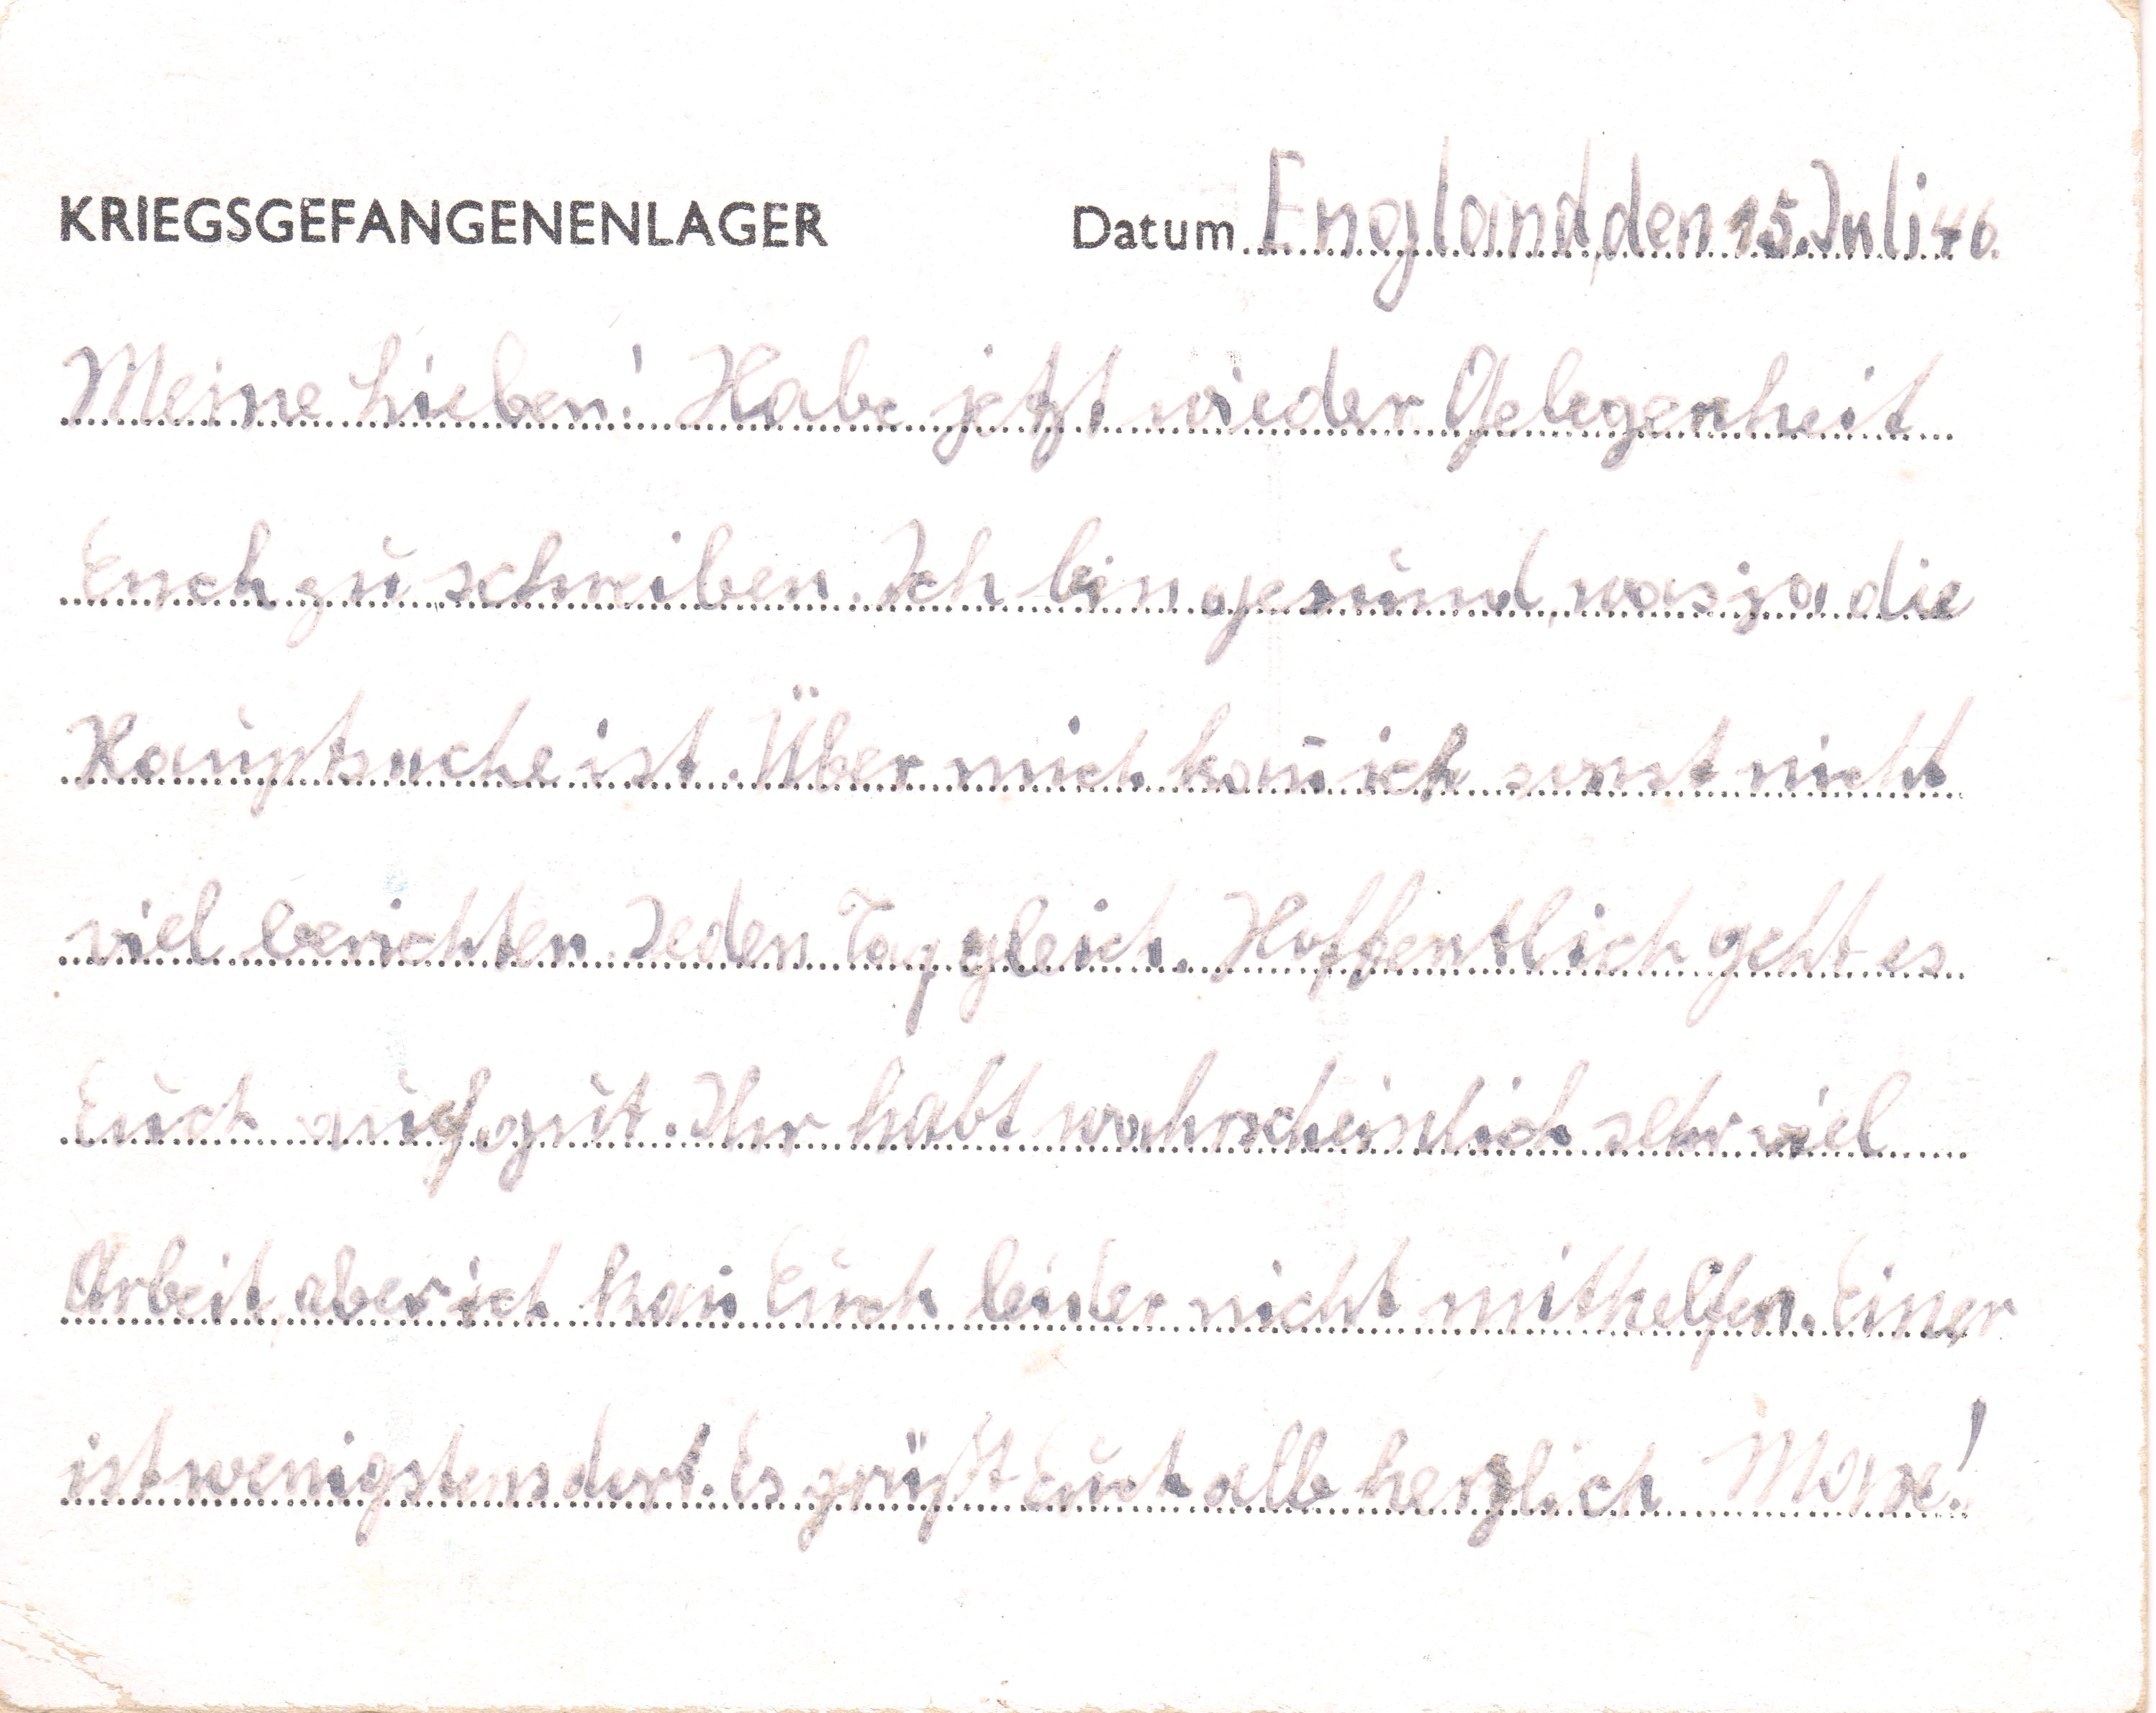 KRIEGSGEFANGENENLAGER Datum England, den 15. Juli 46.
Meine Lieben! Habe jetzt wieder Gelegenheit
Euch zu schreiben. Ich bin gesund, was ja die
Hauptsache ist. Über mich kan̄ ich sonst nicht
viel berichten. Jeden Tag gleich. Hoffentlich geht es
Euch auch gut. Ihr habt wahrscheinlich sehr viel
Arbeit, aber ich kan̄ Euch leider nicht mithelfen. Einer
ist wenigstens dort. Es grüßt Euch alle herzlich Maxe!